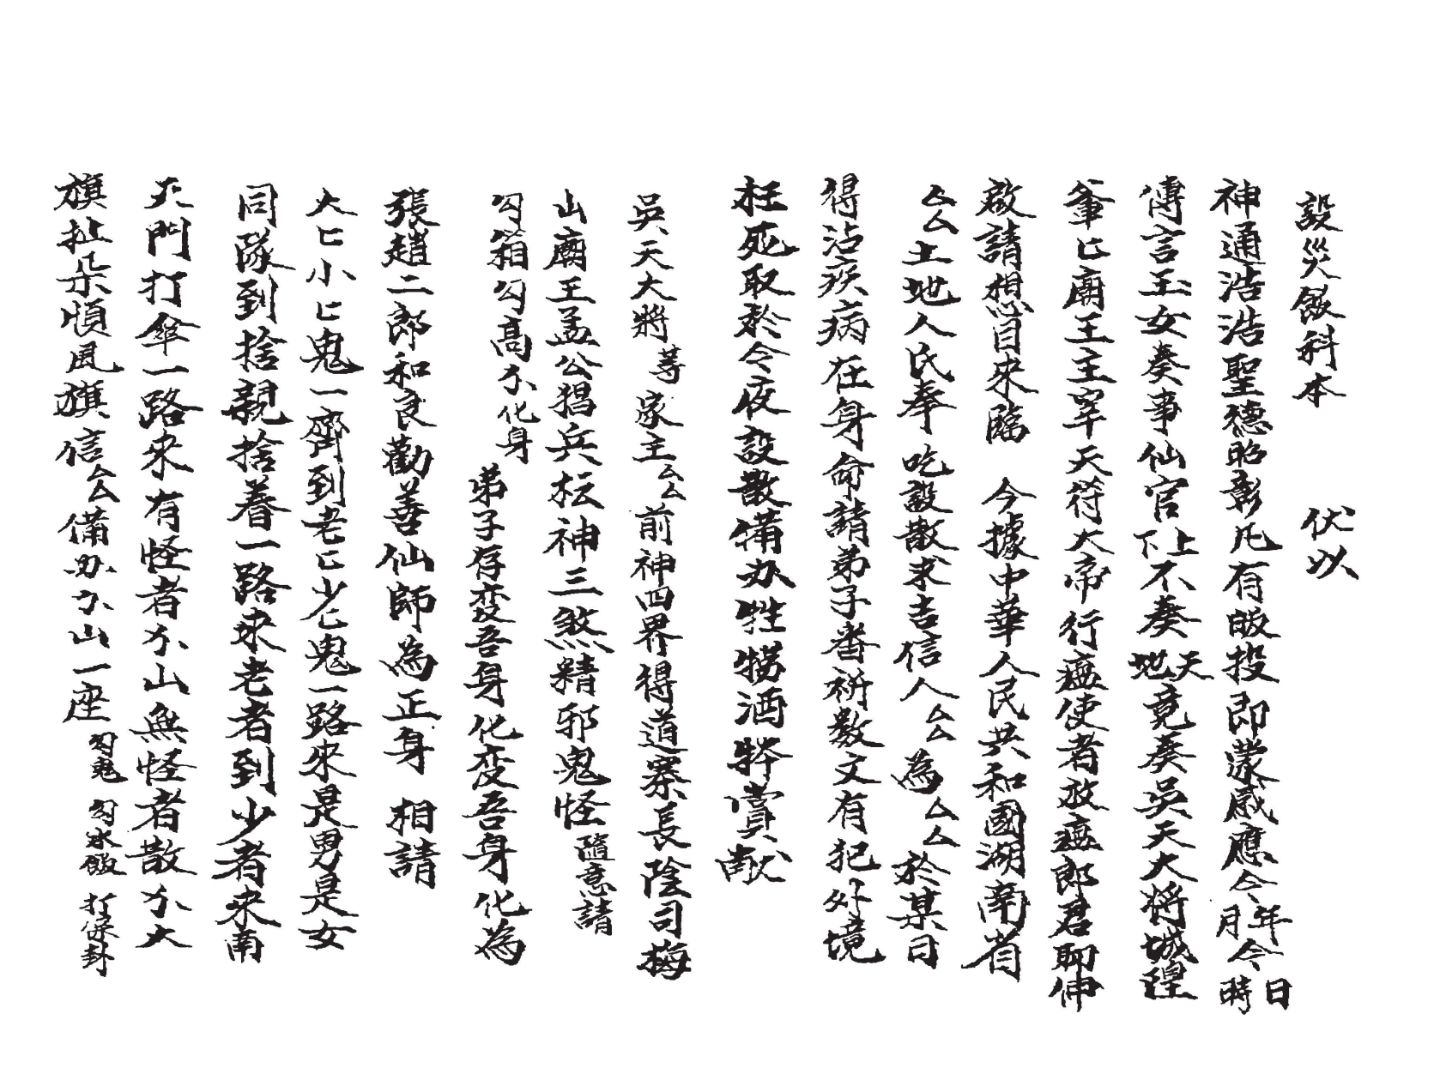 設災飯科本　伏以
神通浩浩聖德昭彰凡有皈投即蒙感應今年今月日時
傳言玉女奏事仙官上下不奏天地竟奏吳天大將城隍
爺匕廟王主宰天符大帝行瘟使者放瘟郎君聊伸
啟請想目來臨　今據中華人民共和國湖南省
厶厶土地人民奉　吃設散求吉信人厶厶為厶厶於某日
得沾疾病在身命請弟子番祈数文有犯外境
枉死取於今夜設散備办牲牷酒賞献
吳天大將等家主厶厶前神四界得道寨長陰司梅
山廟王孟公猖兵枟神三煞精邪鬼怪隨意請
勾箱勾高尒化身　弟子存变吾身化变吾身化為
張趙二郎和良勸善仙師為正身　相請
大匕小匕鬼一齊到老匕少匕鬼一路來是男是女
同隊到捨親捨眷一路來老者到少者來南
天門打傘一路來有怪者尒山無怪者散尒大
旗扯朵順風旗信厶厶備办尒山一座勾鬼　勾水飯　打保封